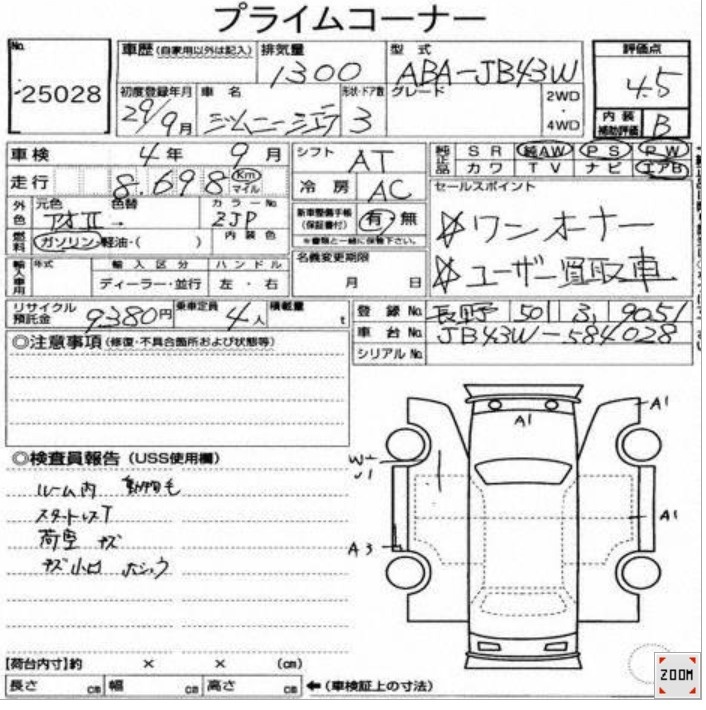 プライムコーナー
No.
25028
車歴 (自家用以外は記入)
排気量
1300
型式
ABA-JB43W
評価点
4.5
初度登録年月
29/9月
車名
ジムニーシエラ
形状・ドア数
3
グレード
2WD
・
4WD
内装
補助評価
B
車検 4年 9月
シフト AT
純正品
SR 純AW PS PW
カワ TV ナビ エアB
走行 8.698 Km マイル
冷房 AC
セールスポイント
☆ワンオーナー
☆ユーザー買取車
外色
元色
色替
カラーNo.
アオII
ZJP
新車整備手帳
(保証書付)
有・無
※書類と一緒に保管下さい。
燃料
ガソリン・軽油・( )
内装色
名義変更期限
月 日
輸入車用
年式
輸入区分
ハンドル
ディーラー・並行
左・右
リサイクル
預託金
9380円
乗車定員
4人
積載量
t
登録No. 長野 501 す 9051
車台No. JB43W-584028
シリアルNo.
◎注意事項 (修復・不具合箇所および状態等)
◎検査員報告 (USS使用欄)
ルーム内 動物毛
スタートレスT
荷室 キズ
キズ小凹 ホシュウ
A1
A1
A1
A3
W-
【荷台内寸】約 × × (cm)
長さ cm 幅 cm 高さ cm ←(車検証上の寸法)
ZOOM